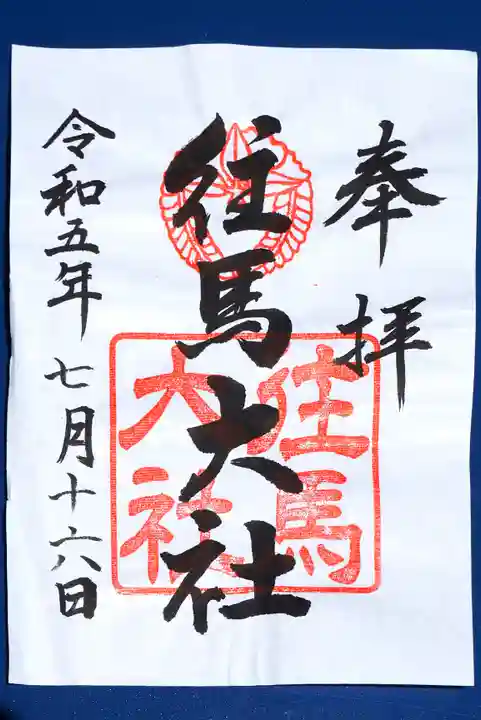 奉拝
往馬大社
往馬
大社
令和五年七月十六日